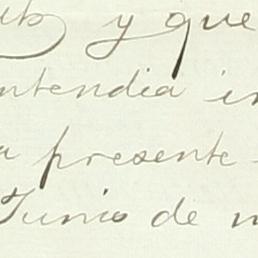 y que
entendia in
a presente
Junio de